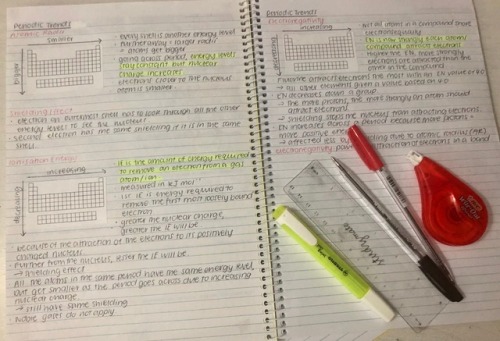 Periodic Trends
Atomic Radii
smaller
bigger
every shell is another energy level
further away = larger radii
∴ atoms get bigger
going across period, energy levels
stay constant but nuclear
charge increases
electrons closer to the nucleus
atom is smaller
Shielding Effect
electron an outermost shell has to look through all the other
energy levels to see the nucleus
second electron has the same shielding if it is in the same
shell
Ionisation Energy
increasing
decreasing
it is the amount of energy required
to remove an electron from a gas
atom/ion
measured in kJ mol
1st IE is energy required to
remove the first most loosely bound
electron
greater the nuclear charge,
greater the IE will be
because of the attraction of the electrons to its positively
charged nucleus
Further from the nucleus, lesser the IE will be
→ shielding effect
All the atoms in the same period have the same energy level,
but get smaller as the period goes across due to increasing
nuclear charge
→ still have same shielding
Noble gases do not apply
Periodic Trends
Electronegativity
increasing
decreasing
not all atoms in a compound share
electrons equally
EN is how strongly each atom/
compound attract electrons
higher the EN, more strongly
electrons are attracted than
other in the compound
Fluorine attracts electrons the most with an EN value of 4.0
→ all other elements given a value based on 4.0
EN decreases down a group
→ the more protons, the more strongly an atom should
attract electrons
→ shielding stops the nucleus from attracting electrons
EN increases across a period because more protons =
more nuclear energy
→ affected less by shielding due to atomic radius
Electronegativity
electrons in a bond